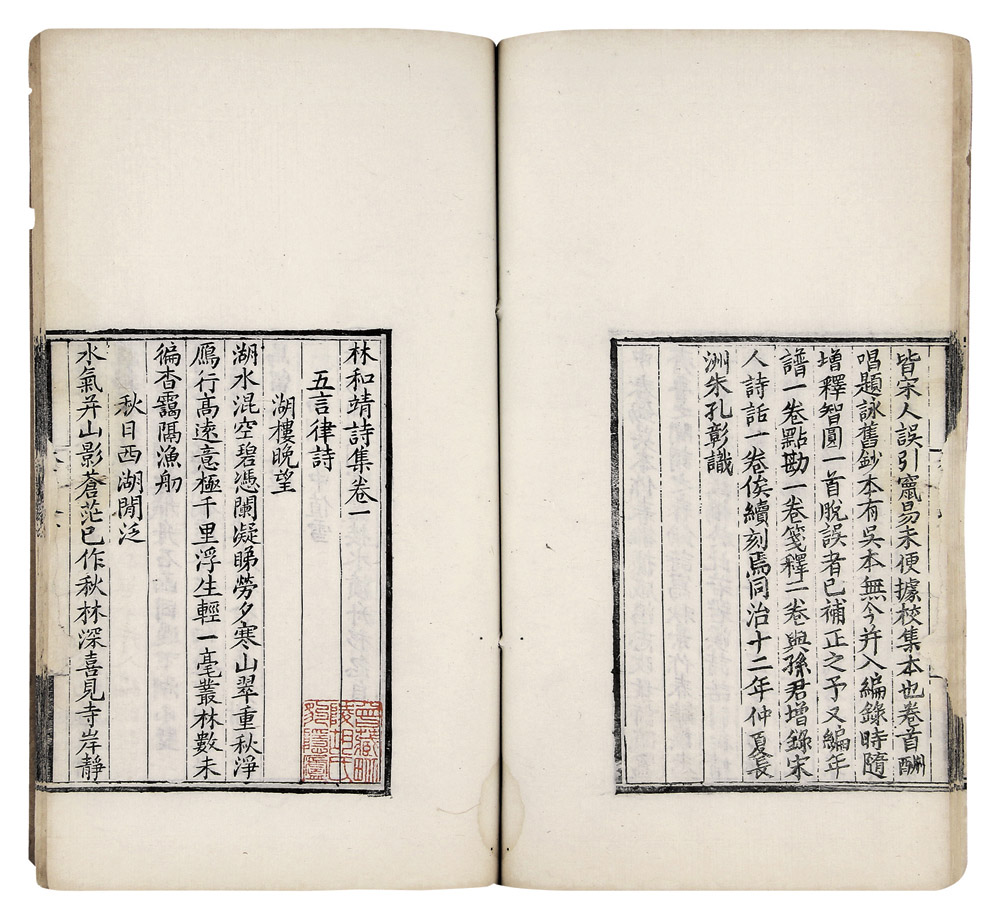 皆宋人誤引竄易未便據校集本也卷首酬
唱題詠舊鈔本有吳本無今并入編錄時隨
增釋智圓一首脫誤者已補正之予又編年
譜一卷點勘一卷箋釋二卷與孫君增錄宋
人詩話一卷俟續刻焉同治十二年仲夏長
洲朱孔彰識
林和靖詩集卷一
五言律詩
湖樓晚望
湖水混空碧憑闌凝睇勞夕寒山翠重秋淨
鴈行高遠意極千里浮生輕一毫叢林數未
徧杳靄隔漁舠
秋日西湖閒泛
水氣并山影蒼茫已作秋林深喜見寺岸靜
曾藏毗
陵胡氏
豹隱廬